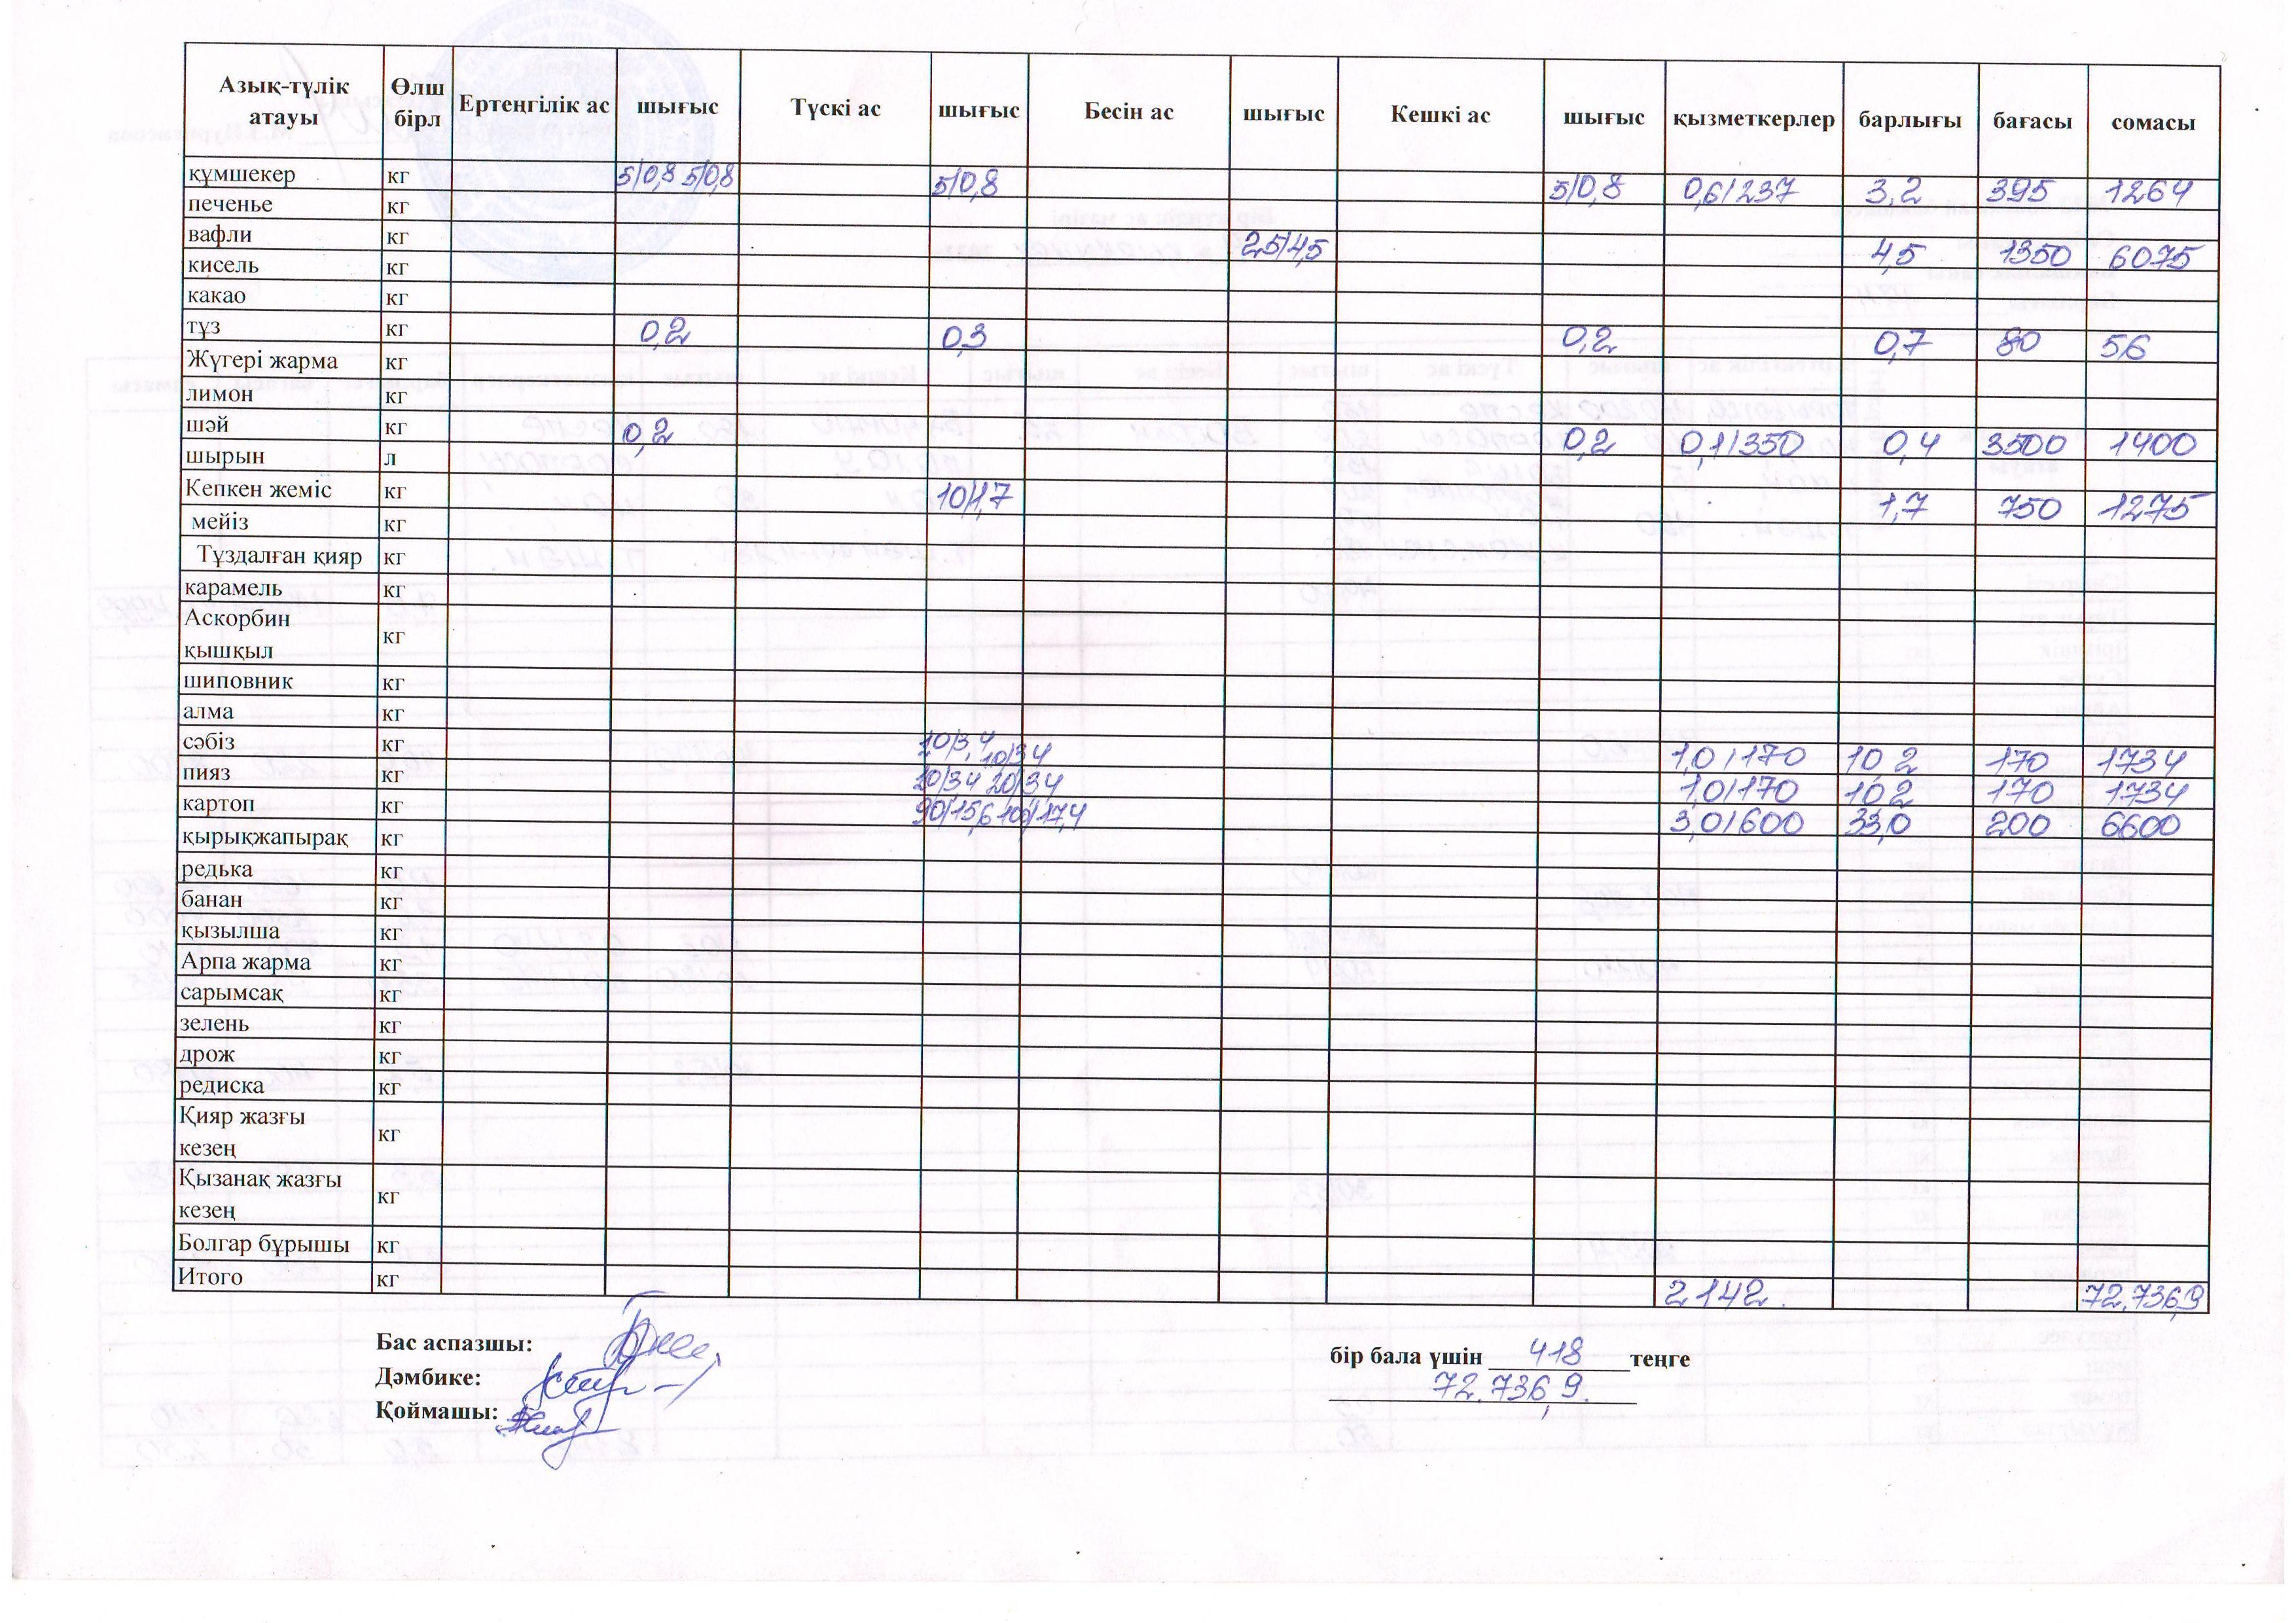 Азық-түлік атауы Өлш бірл Ертеңгілік ас шығыс Түскі ас шығыс Бесін ас шығыс Кешкі ас шығыс қызметкерлер барлығы бағасы сомасы
құмшекер кг 5/0,8 5/0,8 5/0,8 5/0,8 0,6/237 3,2 395 1264
печенье кг
вафли кг 25/4,5 4,5 1350 6075
кисель кг
какао кг
тұз кг 0,2 0,3 0,2 0,7 80 56
Жүгері жарма кг
лимон кг
шәй кг 0,2 0,2 0,1/350 0,4 3500 1400
шырын л
Кепкен жеміс кг 10/1,7 1,7 750 1275
мейіз кг
Тұздалған қияр кг
карамель кг
Аскорбин қышқыл кг
шиповник кг
алма кг
сәбіз кг 10/3,4 10/3,4 1,0/170 10,2 170 1734
пияз кг 20/3,4 20/3,4 1,0/170 10,2 170 1734
картоп кг 90/15,6 100/17,4 3,0/600 33,0 200 6600
қырықжапырақ кг
редька кг
банан кг
қызылша кг
Арпа жарма кг
сарымсақ кг
зелень кг
дрож кг
редиска кг
Қияр жазғы кезең кг
Қызанақ жазғы кезең кг
Болгар бұрышы кг
Итого кг 2142. 72.736,9
Бас аспазшы:
Дәмбике:
Қоймашы:
бір бала үшін 418 теңге
72.736,9.